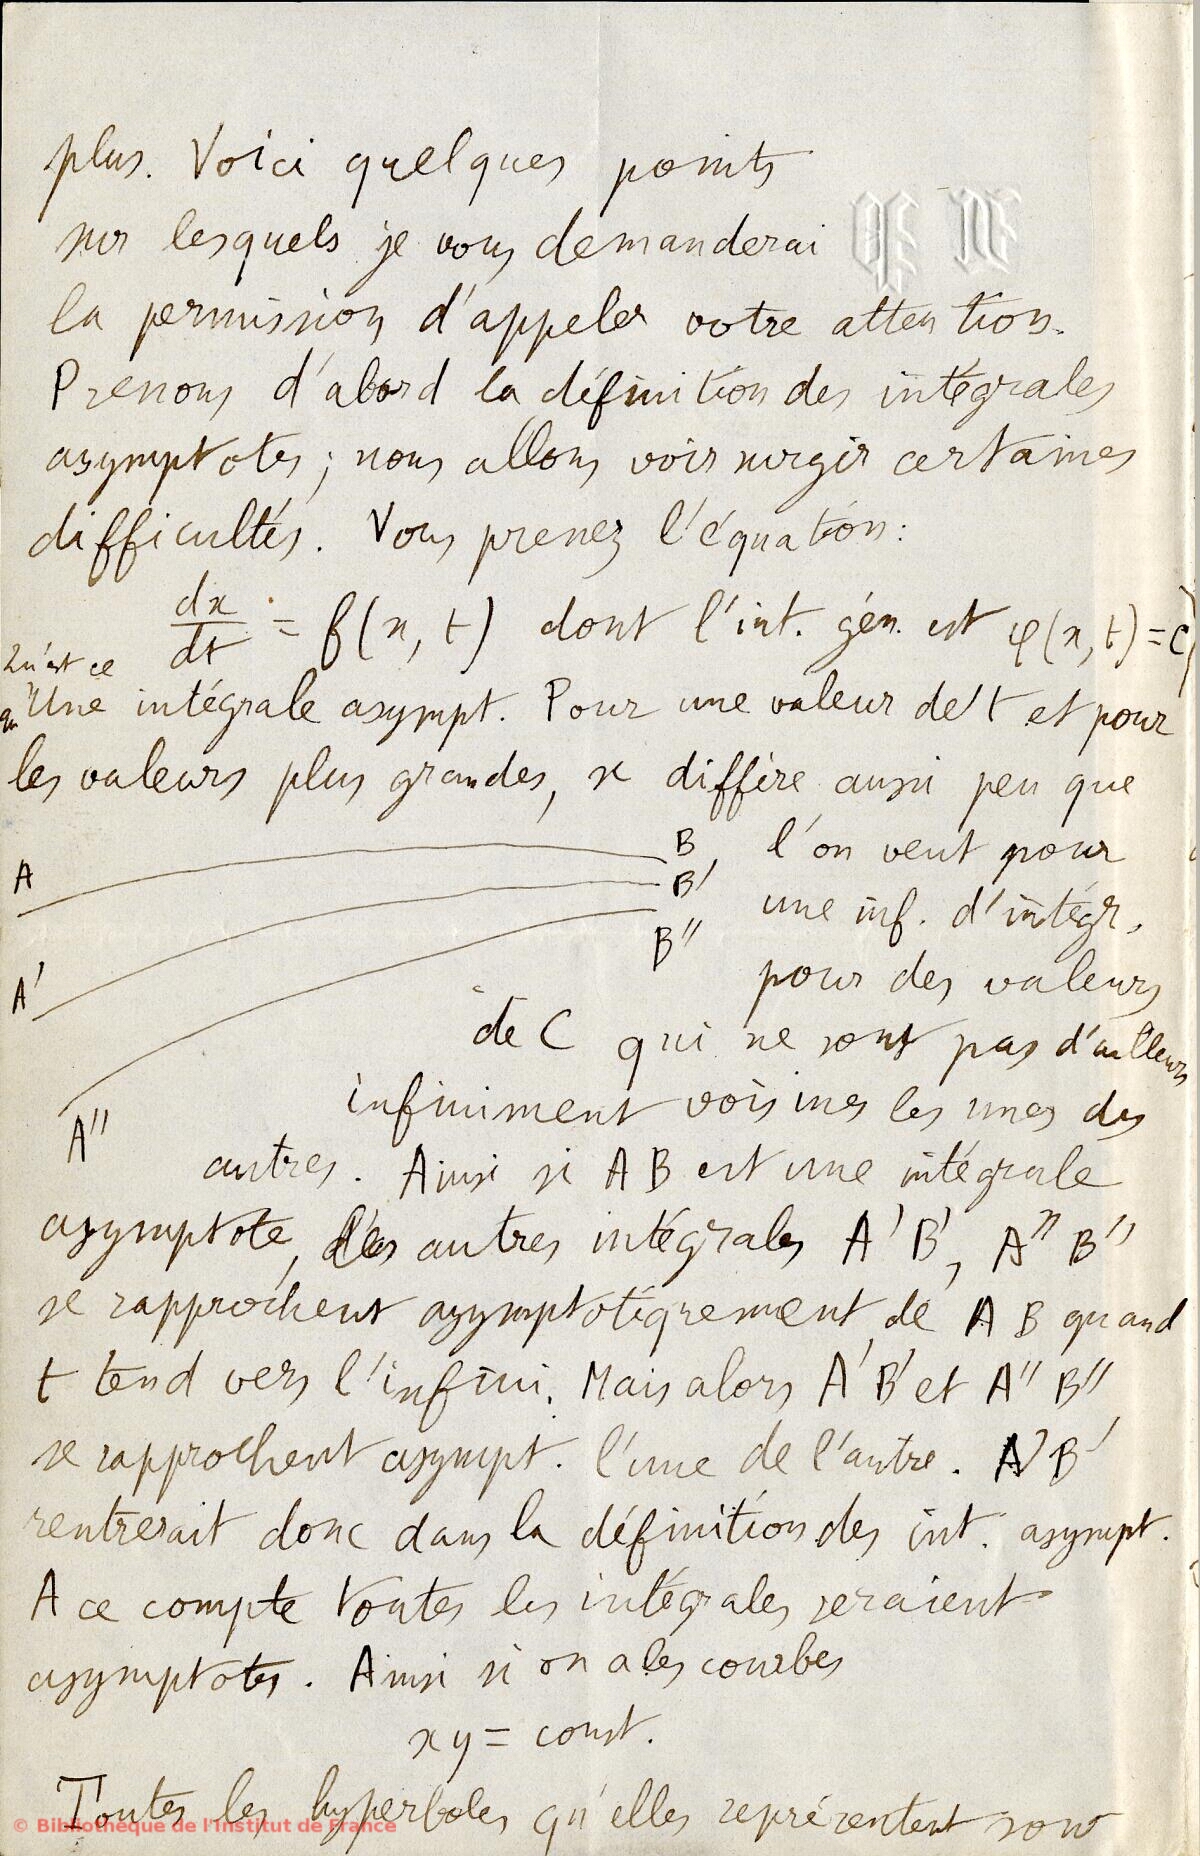 plus. Voici quelques points
sur lesquels je vous demanderai
la permission d'appeler votre attention.
Prenons d'abord la définition des intégrales
asymptotes ; nous allons voir surgir certaines
difficultés. Vous prenez l'équation :
dx/dt = f(x, t) dont l'int. gén. est φ(x, t) = C
Qu'est ce
qu'Une intégrale asympt. Pour une valeur de t et pour
les valeurs plus grandes, x diffère aussi peu que
A B, l'on veut pour
B' une inf. d'intégr.
B''
A' pour des valeurs
de C qui ne sont pas d'ailleurs
infiniment voisines les unes des
A''
autres. Ainsi si A B est une intégrale
asymptote, les autres intégrales A' B', A'' B''
se rapprochent asymptotiquement de A B quand
t tend vers l'infini. Mais alors A' B' et A'' B''
se rapprochent asympt. l'une de l'autre. A' B'
rentrerait donc dans la définition des int. asympt.
A ce compte toutes les intégrales seraient
asymptotes. Ainsi si on a les courbes
xy = const.
Toutes les hyperboles qu'elles représentent sont
© Bibliothèque de l'Institut de France